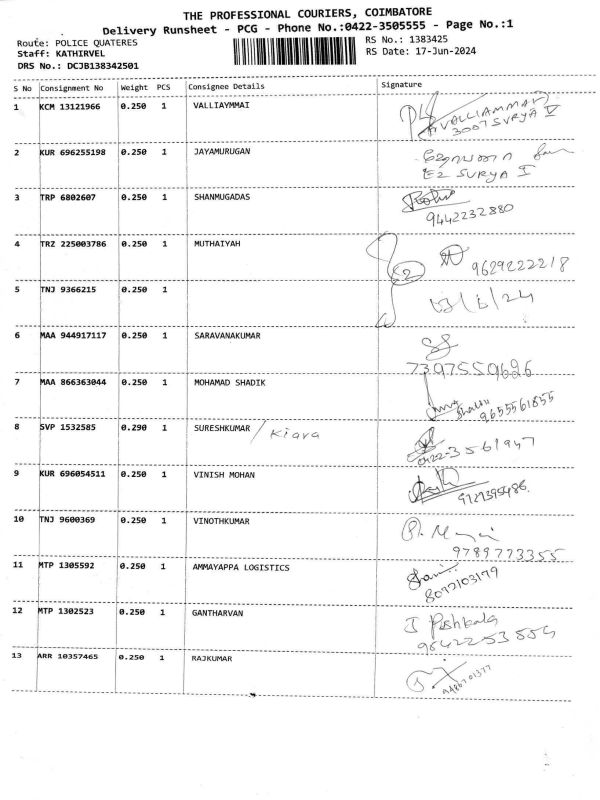 THE PROFESSIONAL COURIERS, COIMBATORE
Delivery Runsheet - PCG - Phone No.:0422-3505555 - Page No.:1
Route: POLICE QUATERES
RS No.: 1383425
Staff: KATHIRVEL
RS Date: 17-Jun-2024
DRS No.: DCJB138342501
S No Consignment No Weight PCS Consignee Details Signature
1 KCM 13121966 0.250 1 VALLIAYMMAI
VALLIAMMAI
3007 SURYA V
2 KUR 696255198 0.250 1 JAYAMURUGAN
E2 SURYA I
3 TRP 6802607 0.250 1 SHANMUGADAS
9442232880
4 TRZ 225003786 0.250 1 MUTHAIYAH
9629222218
5 TNJ 9366215 0.250 1
6 MAA 944917117 0.250 1 SARAVANAKUMAR
7397559626
7 MAA 866363044 0.250 1 MOHAMAD SHADIK
9655561855
8 SVP 1532585 0.290 1 SURESHKUMAR / Kiara
0422-3561947
9 KUR 696054511 0.250 1 VINISH MOHAN
10 TNJ 9600369 0.250 1 VINOTHKUMAR
9789773355
11 MTP 1305592 0.250 1 AMMAYAPPA LOGISTICS
8072103179
12 MTP 1302523 0.250 1 GANTHARVAN
J Pushkala
13 ARR 10357465 0.250 1 RAJKUMAR